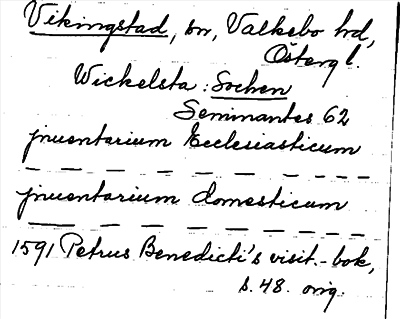 Vikingstad, sn, Valkebo hd,
Östergl.
Wickelsta: Sochen
Seminantes 62
jnuentarium Ecclesiasticum
jnuentarium domesticum
1591 Petrus Benedicti's visit.-bok,
s. 48. orig.